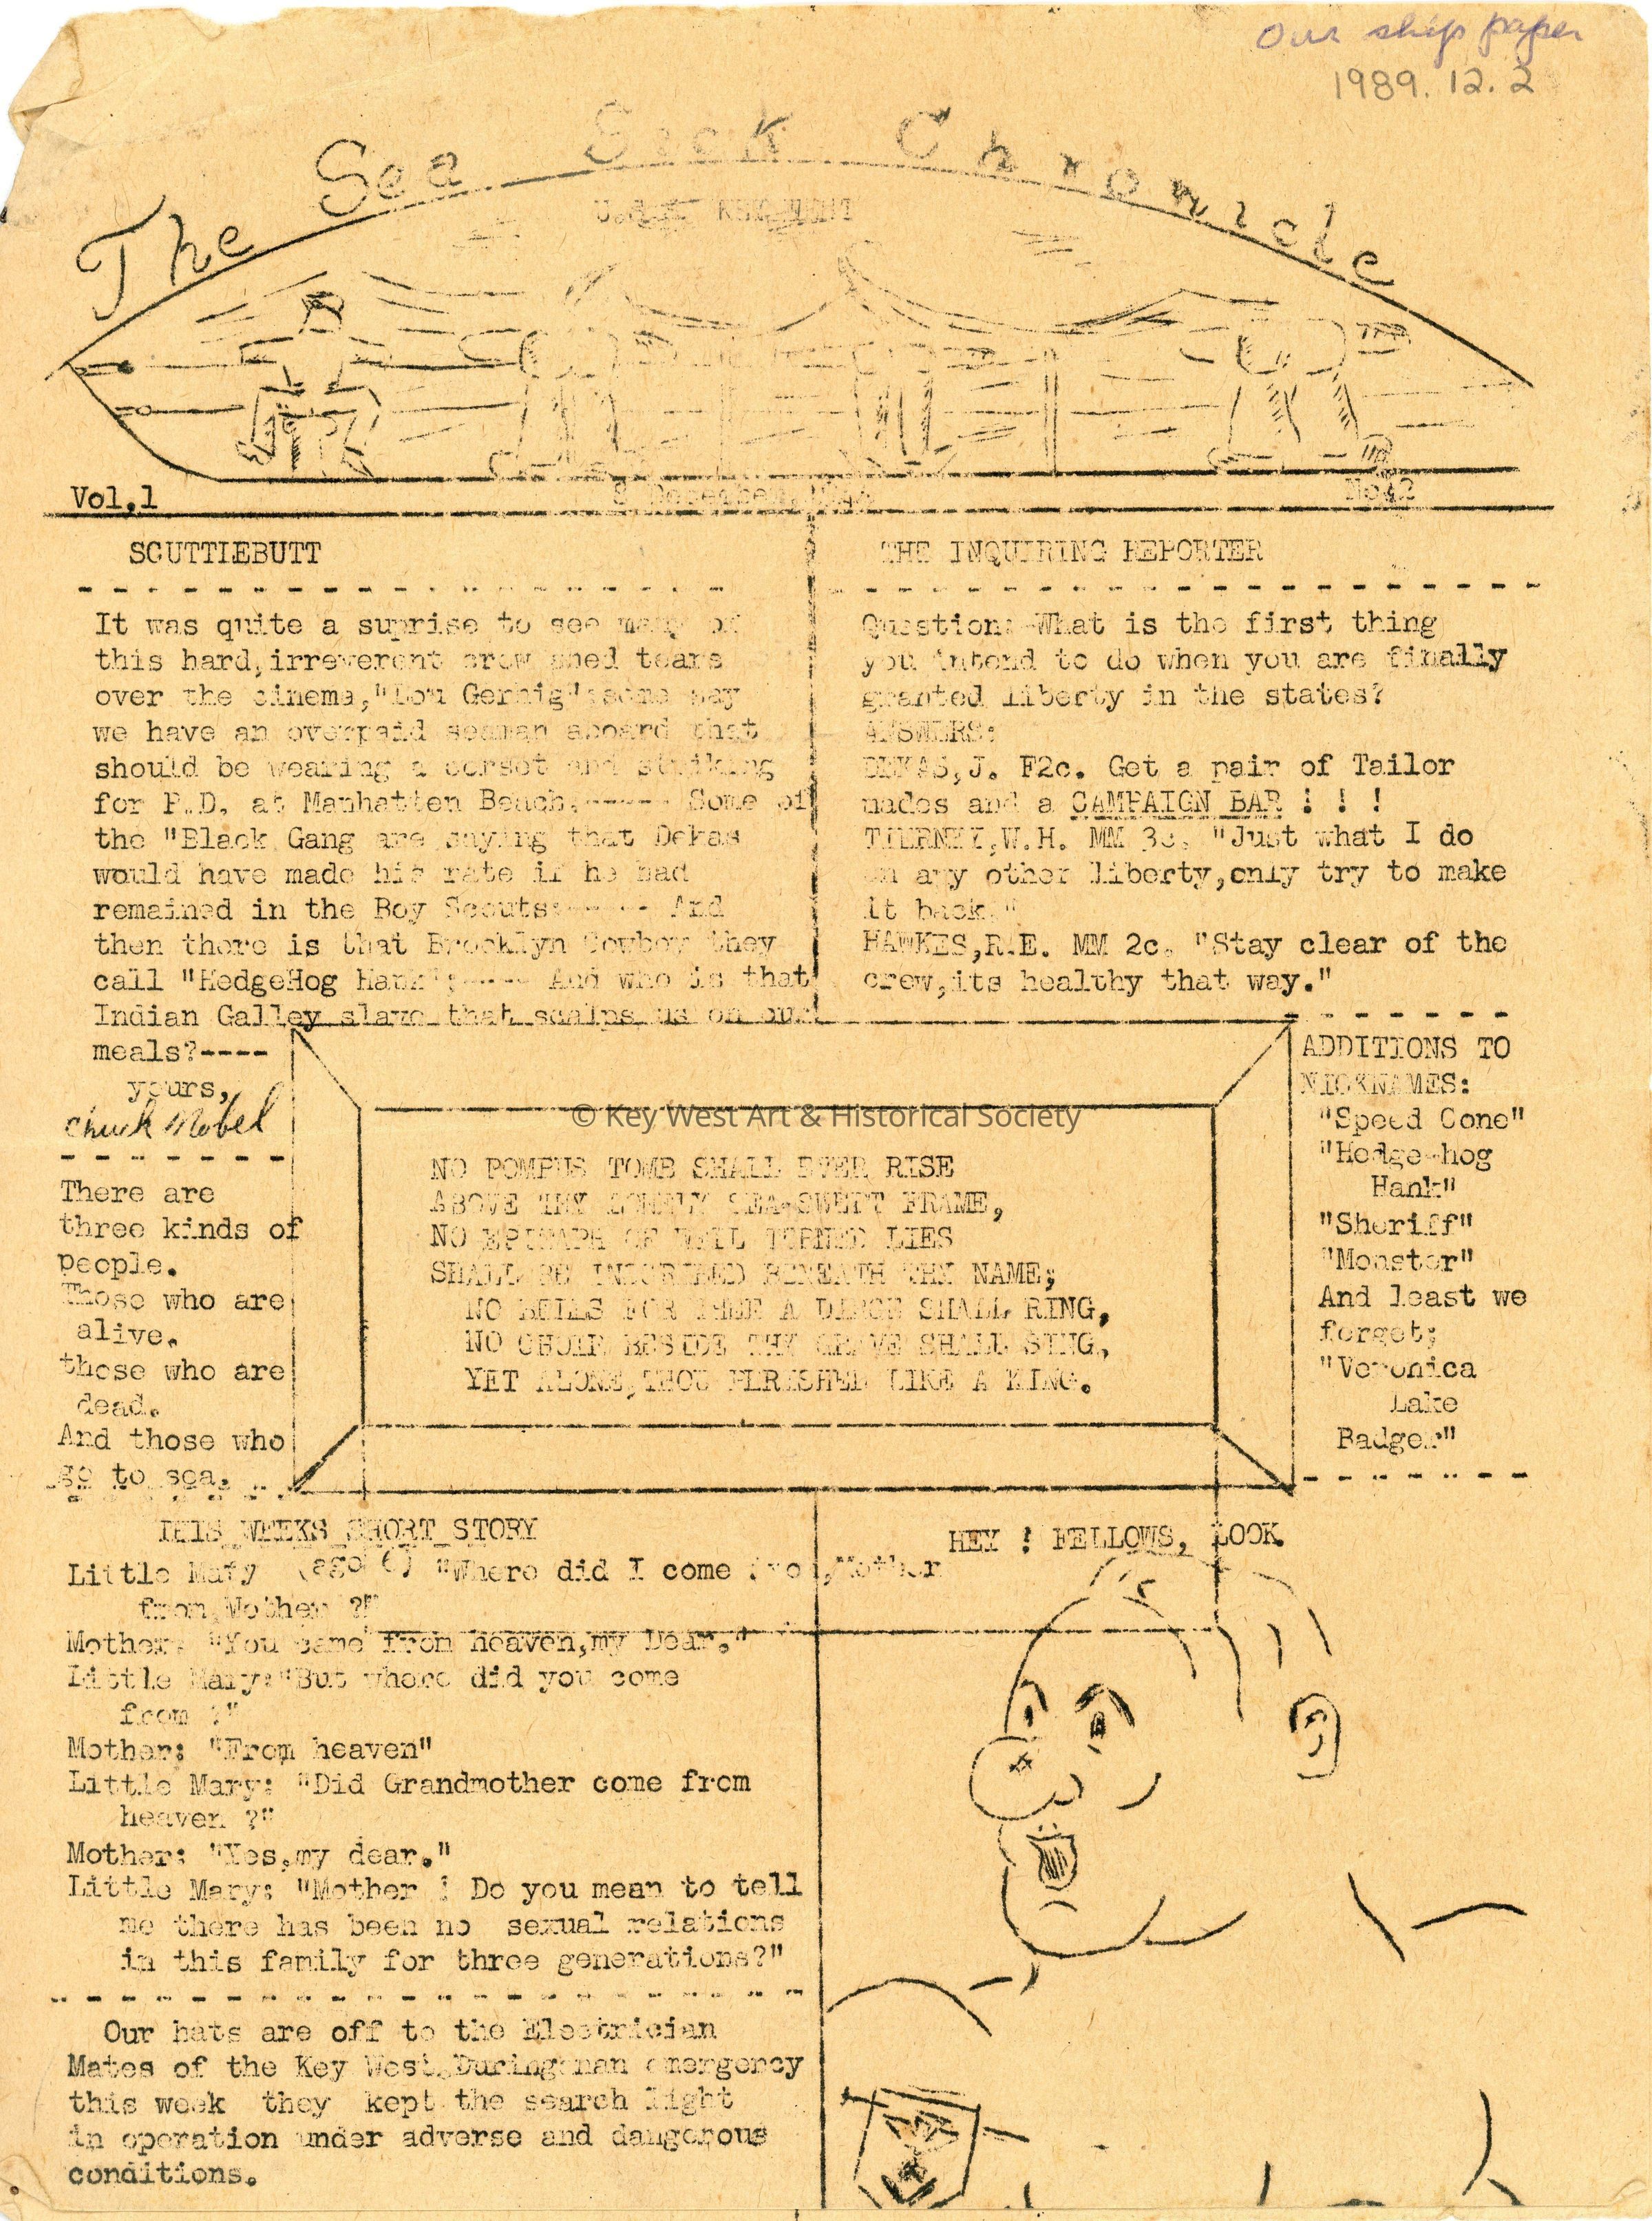 Our ship paper
1989.12.2
The Sea Sick Chronicle
Vol,1 8 December No#2
SCUTTIEBUTT
It was quite a suprise to see many of
this hard,irreverent crew shed tears
over the cinema,"Lou Gerhig";some say
we have an overpaid seaman aboard that
should be wearing a corset and striking
for P.D. at Manhatten Beach.----- Some of
the "Black Gang are saying that Dekas
would have made his rate if he had
remained in the Boy Scouts:----- And
then there is that Brooklyn Cowboy they
call "HedgeHog Hank";---- And who is that
Indian Galley slave that scalps us on our
meals?----
yours,
Chuck Mobel
There are
three kinds of
people.
Those who are
alive.
those who are
dead.
And those who
go to sea.
THE INQUIRING REPORTER
Question: What is the first thing
you intend to do when you are finally
granted liberty in the states?
ANSWERS:
DEKAS,J. F2c. Get a pair of Tailor
mades and a CAMPAIGN BAR ! ! !
TIERNEY,W.H. MM 3c. "Just what I do
on any other liberty,only try to make
it back."
HAWKES,R.E. MM 2c. "Stay clear of the
crew,its healthy that way."
ADDITIONS TO
NICKNAMES:
"Speed Cone"
"Hedge-hog
Hank"
"Sheriff"
"Monster"
And least we
forget;
"Veronica
Lake
Badger"
© Key West Art & Historical Society
NO POMPUS TOMB SHALL EVER RISE
ABOVE THY LONELY SEA-SWEPT FRAME,
NO EPITAPH OF WELL TURNED LIES
SHALL BE INSCRIBED BENEATH THY NAME;
NO BELLS FOR THEE A DIRGE SHALL RING,
NO CHOIR BESIDE THY GRAVE SHALL SING,
YET ALONE,THOU PERISHED LIKE A KING.
THIS WEEKS SHORT STORY
Little Mary (age 6) "Where did I come from,Mother
from,Mother ?"
Mother: "You came from heaven,my Dear."
Little Mary:"But where did you come
from ?"
Mother: "From heaven"
Little Mary: "Did Grandmother come from
heaven ?"
Mother: "Yes,my dear."
Little Mary: "Mother ! Do you mean to tell
me there has been no sexual relations
in this family for three generations?"
Our hats are off to the Electrician
Mates of the Key West.During nan emergency
this week they kept the search light
in operation under adverse and dangerous
conditions.
HEY ! FELLOWS, LOOK